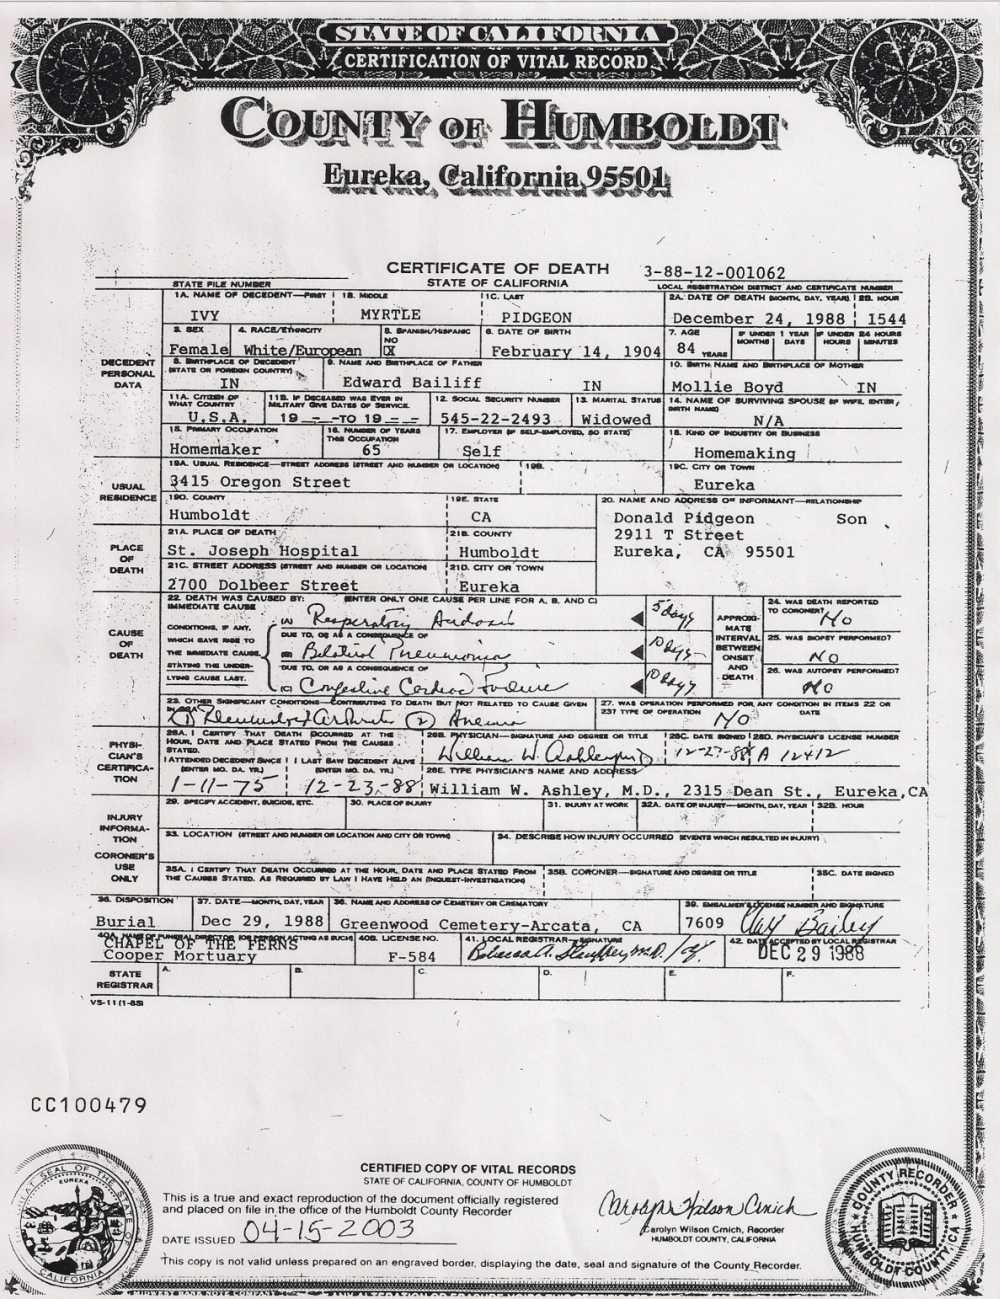 STATE OF CALIFORNIA
CERTIFICATION OF VITAL RECORD
COUNTY OF HUMBOLDT
Eureka, California 95501
CERTIFICATE OF DEATH
STATE OF CALIFORNIA
3-88-12-001062
STATE FILE NUMBER
LOCAL REGISTRATION DISTRICT AND CERTIFICATE NUMBER
DECEDENT PERSONAL DATA
1A. NAME OF DECEDENT—FIRST 1B. MIDDLE 1C. LAST 2A. DATE OF DEATH (MONTH, DAY, YEAR) 2B. HOUR
IVY MYRTLE PIDGEON December 24, 1988 1544
3. SEX 4. RACE/ETHNICITY 5. SPANISH/HISPANIC 6. DATE OF BIRTH 7. AGE IF UNDER 1 YEAR IF UNDER 24 HOURS
NO MONTHS DAYS HOURS MINUTES
Female White/European X February 14, 1904 84 YEARS
8. BIRTHPLACE OF DECEDENT (STATE OR FOREIGN COUNTRY) 9. NAME AND BIRTHPLACE OF FATHER 10. BIRTH NAME AND BIRTHPLACE OF MOTHER
IN Edward Bailiff IN Mollie Boyd IN
11A. CITIZEN OF WHAT COUNTRY 11B. IF DECEASED WAS EVER IN MILITARY GIVE DATES OF SERVICE. 12. SOCIAL SECURITY NUMBER 13. MARITAL STATUS 14. NAME OF SURVIVING SPOUSE (IF WIFE, ENTER BIRTH NAME)
U.S.A. 19 -- TO 19 -- 545-22-2493 Widowed N/A
15. PRIMARY OCCUPATION 16. NUMBER OF YEARS THIS OCCUPATION 17. EMPLOYER (IF SELF-EMPLOYED, SO STATE) 18. KIND OF INDUSTRY OR BUSINESS
Homemaker 65 Self Homemaking
USUAL RESIDENCE
19A. USUAL RESIDENCE—STREET ADDRESS (STREET AND NUMBER OR LOCATION) 19B. 19C. CITY OR TOWN
3415 Oregon Street Eureka
19D. COUNTY 19E. STATE 20. NAME AND ADDRESS OF INFORMANT—RELATIONSHIP
Humboldt CA Donald Pidgeon Son
2911 T Street
Eureka, CA 95501
PLACE OF DEATH
21A. PLACE OF DEATH 21B. COUNTY
St. Joseph Hospital Humboldt
21C. STREET ADDRESS (STREET AND NUMBER OR LOCATION) 21D. CITY OR TOWN
2700 Dolbeer Street Eureka
CAUSE OF DEATH
22. DEATH WAS CAUSED BY: (ENTER ONLY ONE CAUSE PER LINE FOR A, B, AND C)
IMMEDIATE CAUSE
CONDITIONS, IF ANY, WHICH GAVE RISE TO THE IMMEDIATE CAUSE, STATING THE UNDERLYING CAUSE LAST.
(A) Respiratory 5 days
DUE TO, OR AS A CONSEQUENCE OF
(B) Bilateral Pneumonia 10 days
DUE TO, OR AS A CONSEQUENCE OF
(C) Congestive Cardiac Failure 10 days
APPROXIMATE INTERVAL BETWEEN ONSET AND DEATH
24. WAS DEATH REPORTED TO CORONER?
No
25. WAS BIOPSY PERFORMED?
No
26. WAS AUTOPSY PERFORMED?
No
23. OTHER SIGNIFICANT CONDITIONS—CONTRIBUTING TO DEATH BUT NOT RELATED TO CAUSE GIVEN IN 22A
(1) Rheumatoid Arthritis (2) Anemia
27. WAS OPERATION PERFORMED FOR ANY CONDITION IN ITEMS 22 OR 23? TYPE OF OPERATION DATE
No
PHYSICIAN'S CERTIFICATION
28A. I CERTIFY THAT DEATH OCCURRED AT THE HOUR, DATE AND PLACE STATED FROM THE CAUSES STATED.
I ATTENDED DECEDENT SINCE (ENTER MO. DA. YR.) I LAST SAW DECEDENT ALIVE (ENTER MO. DA. YR.)
1-11-75 12-23-88
28B. PHYSICIAN—SIGNATURE AND DEGREE OR TITLE 28C. DATE SIGNED 28D. PHYSICIAN'S LICENSE NUMBER
William W. Ashley MD 12-27-88 A 12412
28E. TYPE PHYSICIAN'S NAME AND ADDRESS
William W. Ashley, M.D., 2315 Dean St., Eureka,CA
INJURY INFORMATION
CORONER'S USE ONLY
29. SPECIFY ACCIDENT, SUICIDE, ETC. 30. PLACE OF INJURY 31. INJURY AT WORK 32A. DATE OF INJURY—MONTH, DAY, YEAR 32B. HOUR
33. LOCATION (STREET AND NUMBER OR LOCATION AND CITY OR TOWN) 34. DESCRIBE HOW INJURY OCCURRED (EVENTS WHICH RESULTED IN INJURY)
35A. I CERTIFY THAT DEATH OCCURRED AT THE HOUR, DATE AND PLACE STATED FROM THE CAUSES STATED. AS REQUIRED BY LAW I HAVE HELD AN (INQUEST-INVESTIGATION) 35B. CORONER—SIGNATURE AND DEGREE OR TITLE 35C. DATE SIGNED
36. DISPOSITION 37. DATE—MONTH, DAY, YEAR 38. NAME AND ADDRESS OF CEMETERY OR CREMATORY 39. EMBALMER'S LICENSE NUMBER AND SIGNATURE
Burial Dec 29, 1988 Greenwood Cemetery-Arcata, CA 7609 Clay Bailey
40A. NAME OF FUNERAL DIRECTOR (OR PERSON ACTING AS SUCH) 40B. LICENSE NO. 41. LOCAL REGISTRAR—SIGNATURE 42. DATE ACCEPTED BY LOCAL REGISTRAR
CHAPEL OF THE FERNS
Cooper Mortuary F-584 DEC 29 1988
STATE REGISTRAR A. B. C. D. E. F.
VS-11 (1-85)
CC100479
CERTIFIED COPY OF VITAL RECORDS
STATE OF CALIFORNIA, COUNTY OF HUMBOLDT
This is a true and exact reproduction of the document officially registered
and placed on file in the office of the Humboldt County Recorder
DATE ISSUED 04-15-2003
Carolyn Wilson Crnich
Carolyn Wilson Crnich, Recorder
HUMBOLDT COUNTY, CALIFORNIA
This copy is not valid unless prepared on an engraved border, displaying the date, seal and signature of the County Recorder.
SEAL OF THE STATE
EUREKA
CALIFORNIA
COUNTY RECORDER
HUMBOLDT COUNTY, CA
MIDWEST BANK NOTE COMPANY